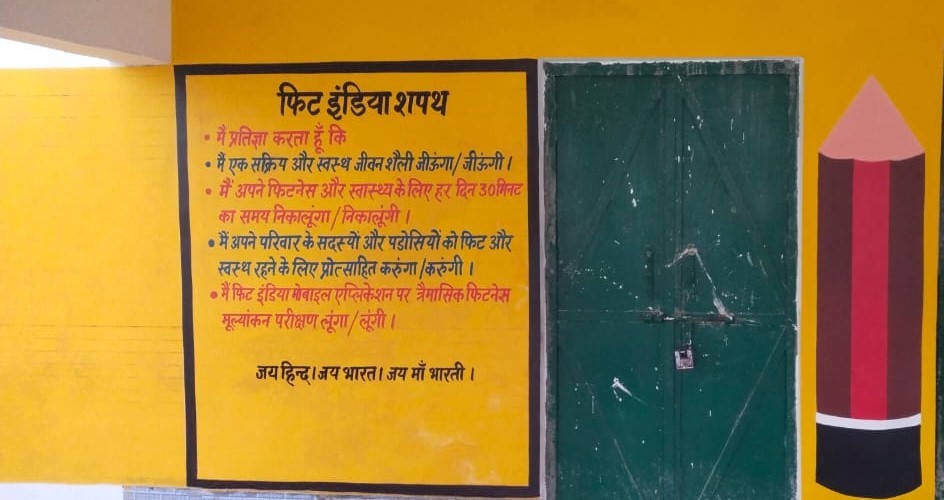 फिट इंडिया शपथ
• मैं प्रतिज्ञा करता हूँ कि
• मैं एक सक्रिय और स्वस्थ जीवन शैली जीऊंगा/जीऊंगी।
• मैं अपने फिटनेस और स्वास्थ्य के लिए हर दिन 30मिनट
का समय निकालूंगा/निकालूंगी।
• मैं अपने परिवार के सदस्यों और पडोसियों को फिट और
स्वस्थ रहने के लिए प्रोत्साहित करुंगा/करुंगी।
• मैं फिट इंडिया मोबाइल एप्लिकेशन पर त्रैमासिक फिटनेस
मूल्यांकन परीक्षण लूंगा/लूंगी।
जय हिन्द। जय भारत। जय माँ भारती।